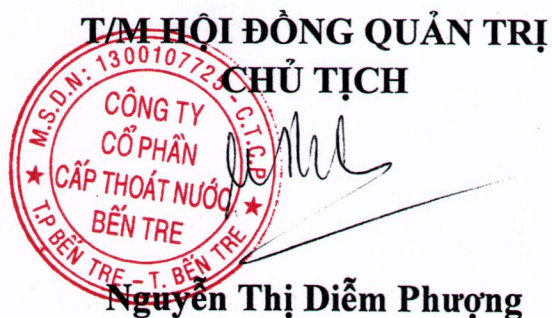 T/M HỘI ĐỒNG QUẢN TRỊ
CHỦ TỊCH
M.S.D.N: 1300107725 - C.T.C.P
CÔNG TY
CỔ PHẦN
CẤP THOÁT NƯỚC
BẾN TRE
T.P BẾN TRE - T. BẾN TRE
Nguyễn Thị Diễm Phượng